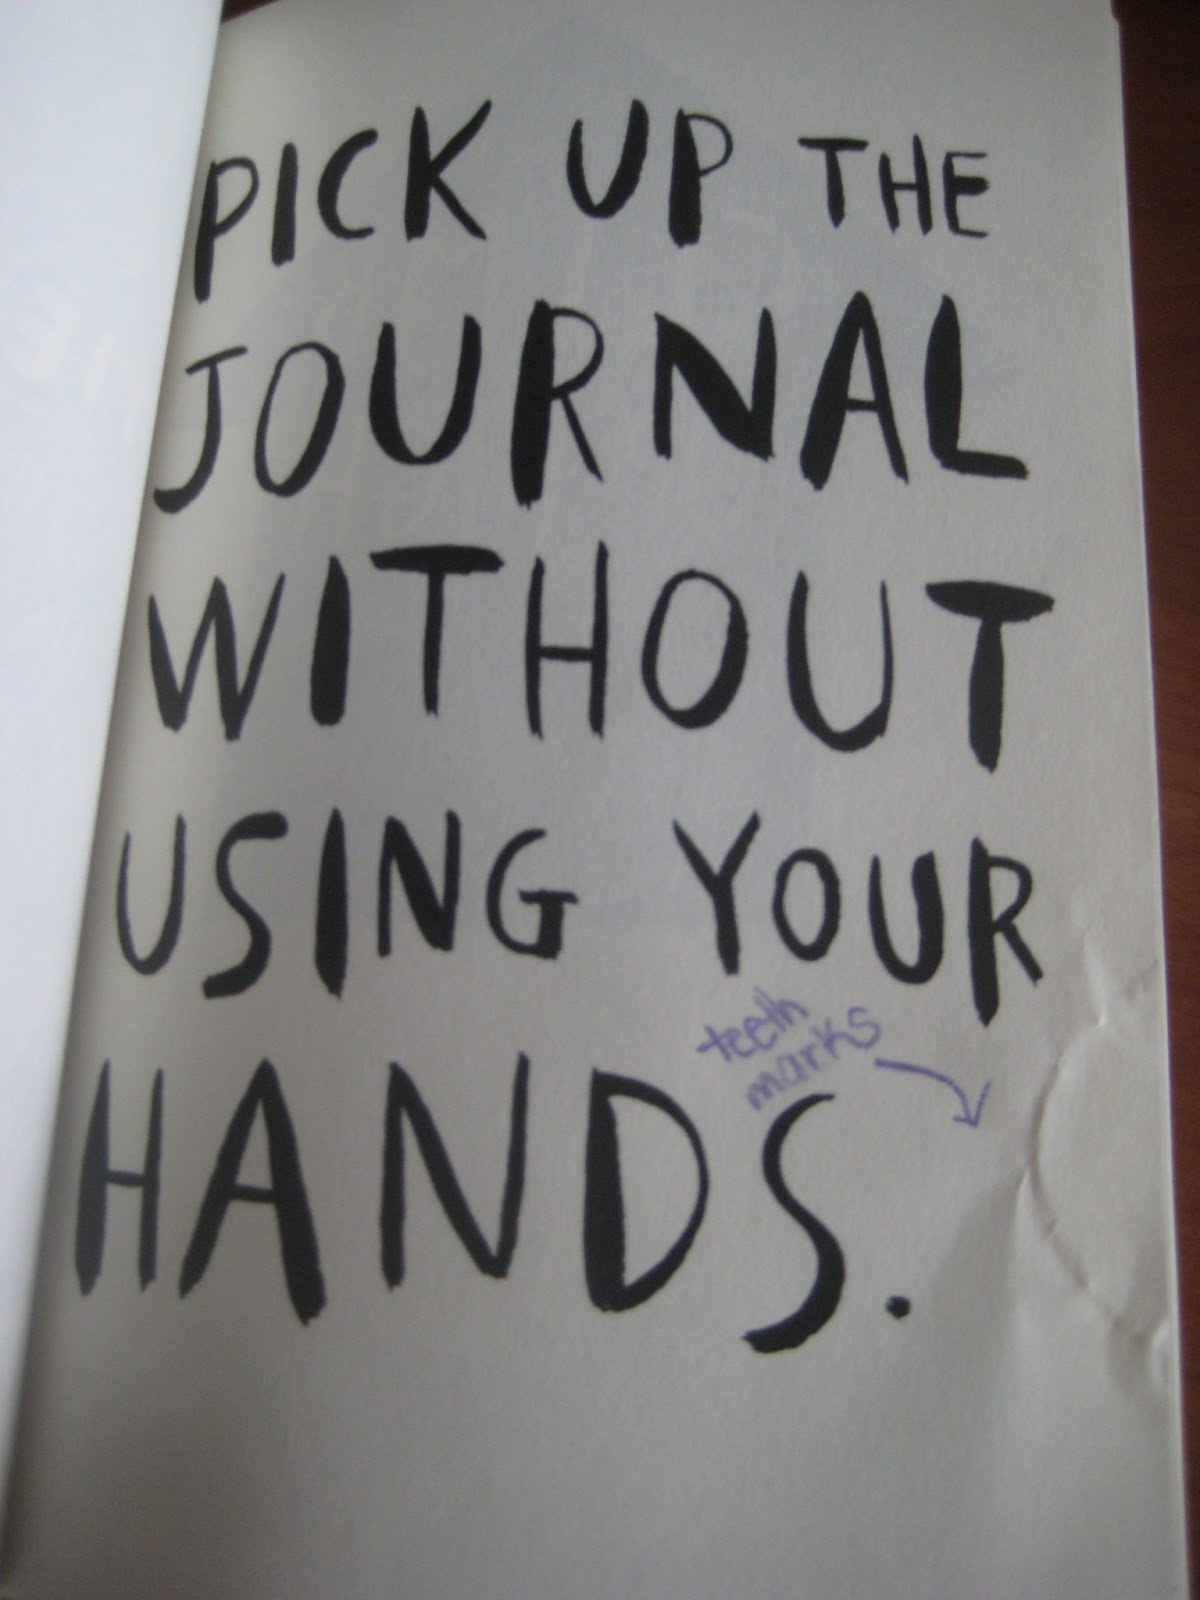 PICK UP THE
JOURNAL
WITHOUT
USING YOUR
teeth
marks
HANDS.